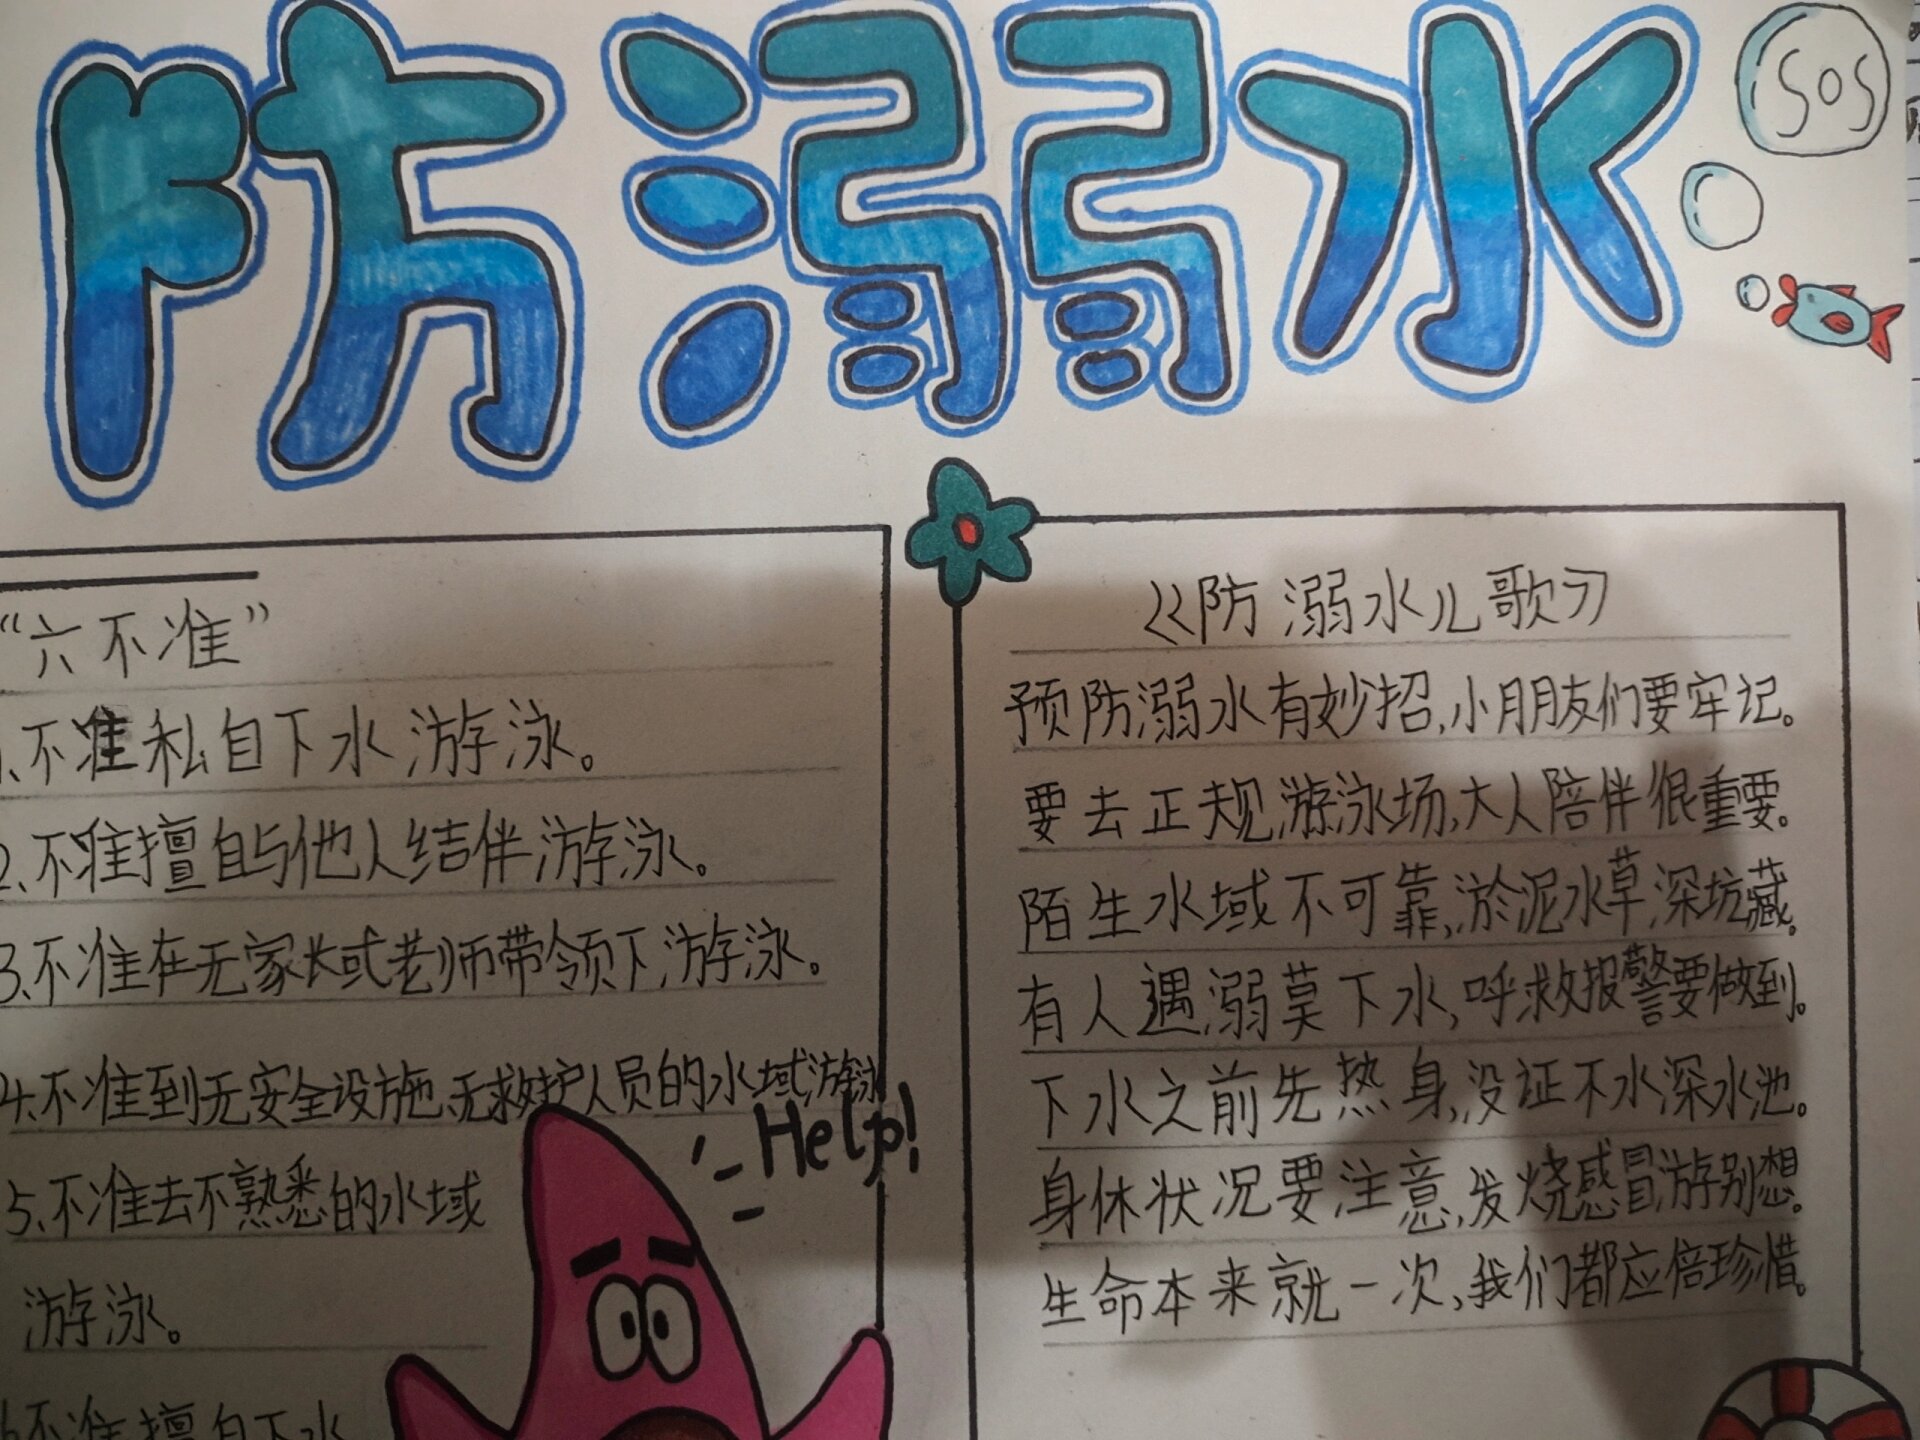 防溺水
SOS
“六不准”
1、不准私自下水游泳。
2、不准擅自与他人结伴游泳。
3、不准在无家长或老师带领下游泳。
4、不准到无安全设施、无救护人员的水域游泳
5、不准去不熟悉的水域
游泳。
6不准擅自下水
Help!
《防溺水儿歌》
预防溺水有妙招,小朋友们要牢记。
要去正规游泳场,大人陪伴很重要。
陌生水域不可靠,淤泥水草深坑藏。
有人遇溺莫下水,呼救报警要做到。
下水之前先热身,没证不水深水池。
身体状况要注意,发烧感冒游别想。
生命本来就一次,我们都应倍珍惜。